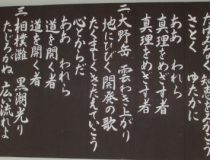 さとく ゆたかに
ああ われら
真理をめざす者
真理をめざす者
二 大野岳 雲わき上がり
地にひびく 開発の歌
たくましく きたえてこう
心とからだ
ああ われら
道を開く者
道を開く者
三 相模灘 黒潮光り